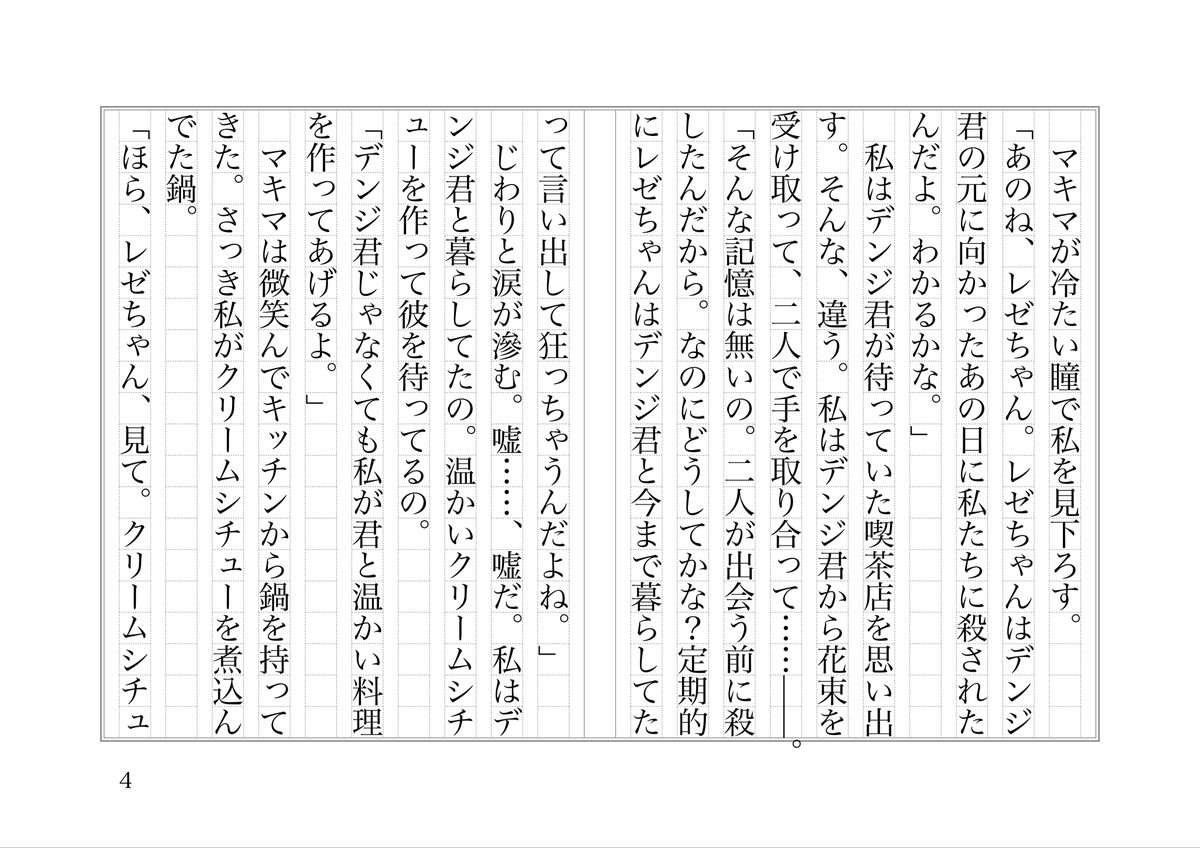 マキマが冷たい瞳で私を見下ろす。
「あのね、レゼちゃん。レゼちゃんはデンジ
君の元に向かったあの日に私たちに殺された
んだよ。わかるかな。」
　私はデンジ君が待っていた喫茶店を思い出
す。そんな、違う。私はデンジ君から花束を
受け取って、二人で手を取り合って……――。
「そんな記憶は無いの。二人が出会う前に殺
したんだから。なのにどうしてかな？定期的
にレゼちゃんはデンジ君と今まで暮らしてた
って言い出して狂っちゃうんだよね。」
　じわりと涙が滲む。嘘……、嘘だ。私はデ
ンジ君と暮らしてたの。温かいクリームシチ
ューを作って彼を待ってるの。
「デンジ君じゃなくても私が君と温かい料理
を作ってあげるよ。」
　マキマは微笑んでキッチンから鍋を持って
きた。さっき私がクリームシチューを煮込ん
でた鍋。
「ほら、レゼちゃん、見て。クリームシチュ
4